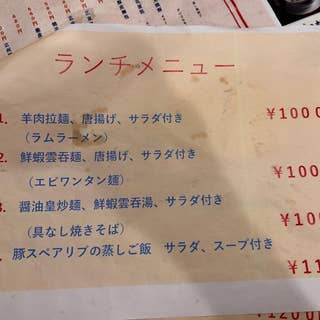 ランチメニュー
1. 羊肉拉麺、唐揚げ、サラダ付き ¥1000
(ラムラーメン)
2. 鮮蝦雲呑麺、唐揚げ、サラダ付き ¥100
(エビワンタン麺)
3. 醤油皇炒麺、鮮蝦雲呑湯、サラダ付き ¥100
(具なし焼きそば)
豚スペアリブの蒸しご飯 サラダ、スープ付き ¥11
¥1200